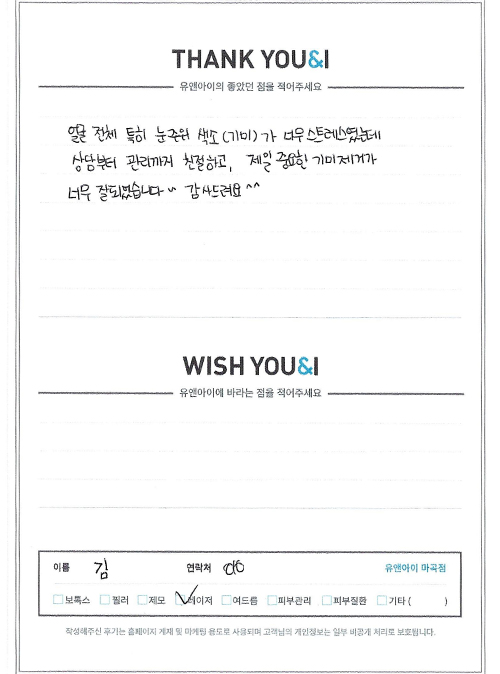 THANK YOU&I
유앤아이의 좋았던 점을 적어주세요
얼굴 전체 특히 눈주위 색소(기미)가 너무스트레스였는데
상담부터 관리까지 친절하고, 제일 중요한 기미제거가
너무 잘되었습니다~ 감사드려요^^
WISH YOU&I
유앤아이에 바라는 점을 적어주세요
이름 김 연락처 010 유앤아이 마곡점
보톡스 필러 제모 레이저 여드름 피부관리 피부질환 기타 ( )
작성해주신 후기는 홈페이지 게재 및 마케팅 용도로 사용되며 고객님의 개인정보는 일부 비공개 처리로 보호됩니다.